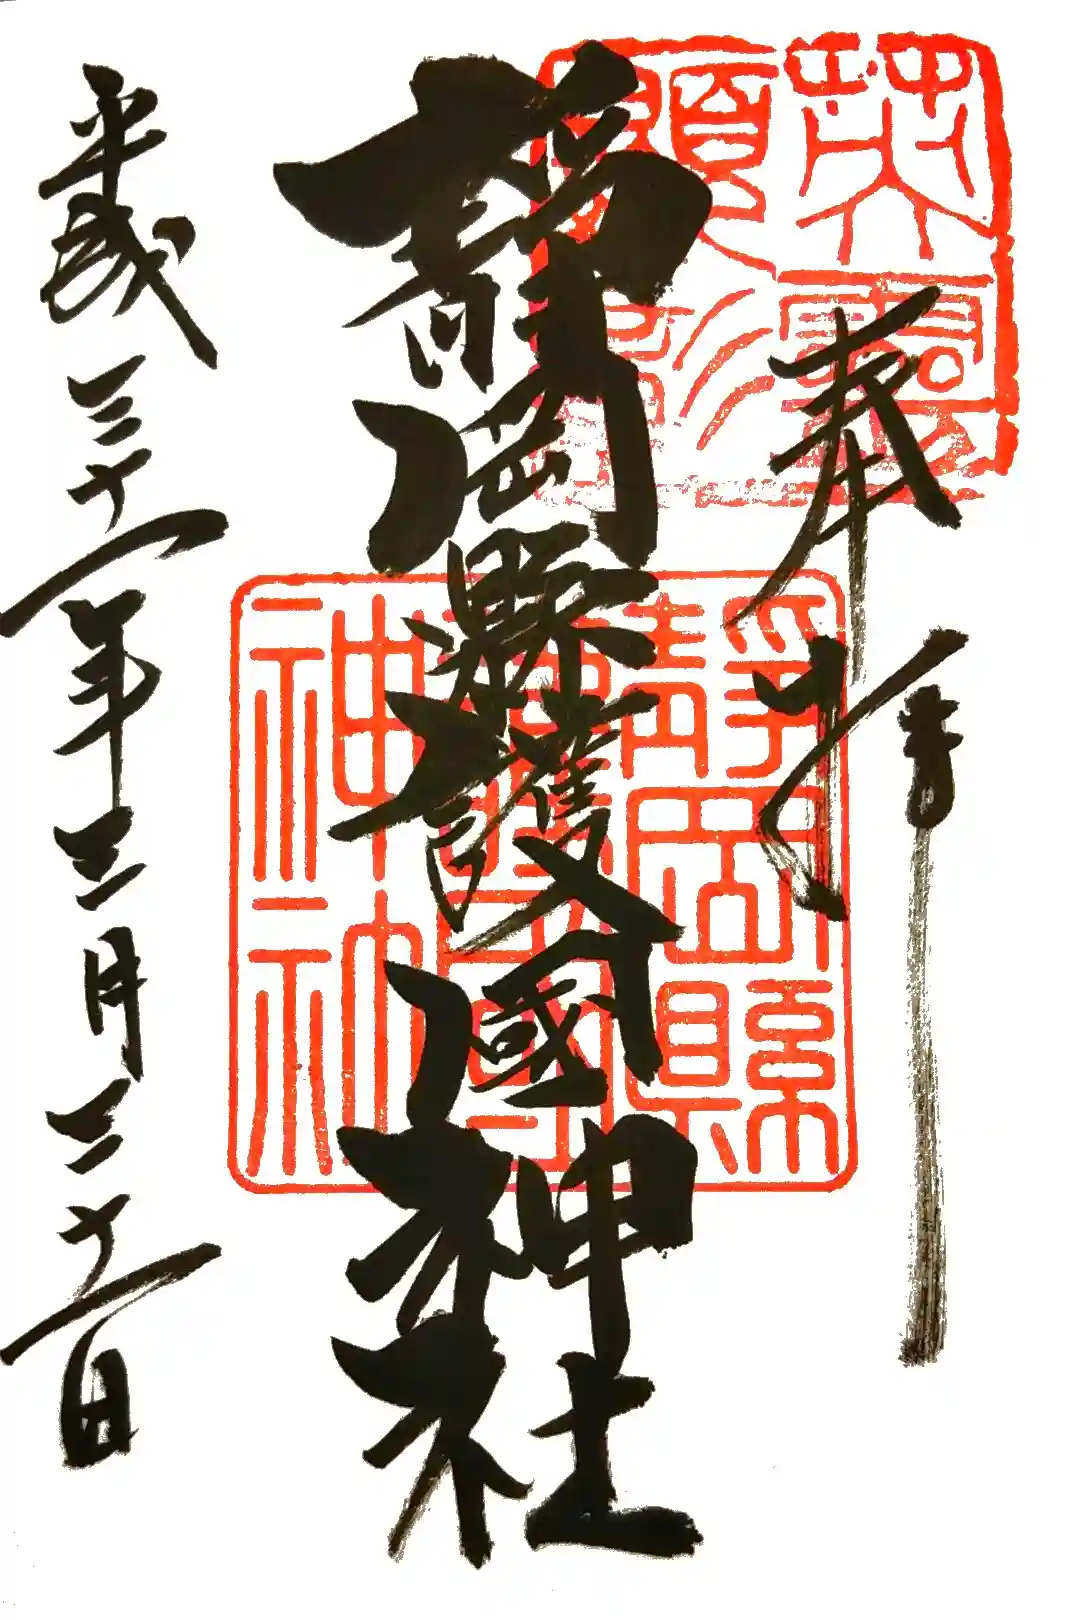 英靈
顯彰
奉拝
靜岡縣護國神社
靜岡縣
護國
神社
平成三十一年三月三十一日